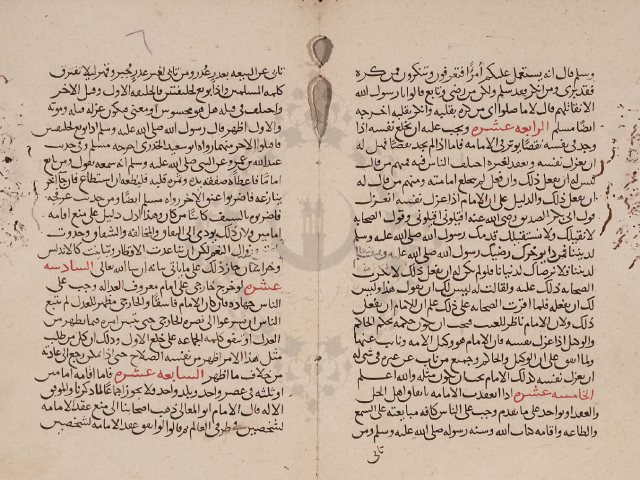 وسلم قال انه يستعمل عليكم أمرا فتعرفون وتنكرون فمن كره
فقد برى ومن انكر فقد سلم ولكن من رضي وتابع قالوا يا رسول الله
الا نقاتلهم قال لا ما صلوا اى من كره بقلبه وانكر بقلبه اخرجه
ايضا مسلم الرابعه عشره ويجب عليه ان يخلع نفسه اذا
وجد في نفسه نقصا يوثر في الامامه فاما اذا لم يجد نقصا فهل له
ان يعزل نفسه ويعقد لغيره اختلف الناس فيه فمنهم من قال
ليس له ان يفعل ذلك وان فعل لم ينخلع امامته ومنهم من قال له
ان يفعل ذلك والدليل على ان الامام اذا عزل نفسه انعزل
قول ابي بكر الصديق رضي الله عنه اقيلوني اقيلوني وقول الصحابه
لا نقيلك ولا نستقيلك قدمك رسول الله صلى الله عليه وسلم
لديننا فمن ذا يوخرك رضيك رسول الله صلى الله عليه وسلم
لديننا فلا نرضاك لدنيانا فلو لم يكن له ان يفعل ذلك لانكرت
الصحابه ذلك عليه ولقالت له ليس لك ان تقول هذا وليس
لك ان تفعله فلما اقرت الصحابه على ذلك علم ان للامام ان يفعل
ذلك ولان الامام ناظر للغيب فيجب ان يكون حكمه حكم الحاكم
والوكيل اذا عزل نفسه فان الامام هو وكيل الامه ونايب عنها
ولما اتفق على ان الوكيل والحاكم وجميع من ناب عن غيره في شى له
ان يعزل نفسه كذلك الامام يجب ان يكون مثله والله اعلم
الخامسه عشره اذا انعقدت الامامه باتفاق اهل الحل
والعقد او بواحد على ما تقدم وجب على الناس كافه مبايعته على السمع
والطاعه واقامه كتاب الله وسنه رسوله صلى الله عليه وسلم ومن
تابى
تابى عن البيعه بعذر عذر ومن تابى لغير عذر جبر وقهر ليلا تفترق
كلمه المسلمين واذا بويع لخليفتين فالخليفه الاول وقتل الاخر
واختلف في قتله هل هو محسوس او معنى فيكون عزله قتله وموته
والاول اظهر قال رسول الله صلى الله عليه وسلم اذا بويع لخليفتين
فاقتلوا الاخر منهما رواه ابو سعيد الخدري اخرجه مسلم وفي حديث
عبد الله بن عمرو عن النبي صلى الله عليه وسلم انه سمعه يقول ومن بايع
اماما فاعطاه صفقه يده وثمره قلبه فليطعه ان استطاع فان جا اخر
ينازعه فاضربوا عنق الاخر رواه مسلم ايضا ومن حديث عرفجه
فاضربوه بالسيف كاينا من كان وهذا ادل دليل على منع اقامه
امامين ولان ذلك يودي الى النفاق والمخالفه والشقاق وحدوث
الفتن وزوال النعم لكن ان تباعدت الاقطار وتباينت كالاندلس
وخراسان جاز ذلك على ما ياتي بيانه ان شا الله تعالى السادسه
عشره لو خرج خارجي على امام معروف العداله وجب على
الناس جهاده فان كان الامام فاسقا والخارجي مظهر للعدل لم ينبغ
للناس ان يسرعوا الى نصره الخارجي حتى يتبين امره فيما يظهر من
العدل او تتفق كلمه الجماعه على خلع الاول وذلك ان كل من طلب
مثل هذا الامر اظهر من نفسه الصلاح حتى اذا تمكن رجع الى عادته
من خلاف ما اظهر السابعه عشره فاما اقامه امامين
او ثلثه في عصر واحد وبلد واحد فلا يجوز اجماعا لما ذكرنا
الا انه قال الامام ابو المعالي ذهب اصحابنا الى منع عقد الامامه
لشخصين في طرفي العالم ثم قالوا لو اتفق عقد الامامه لشخصين